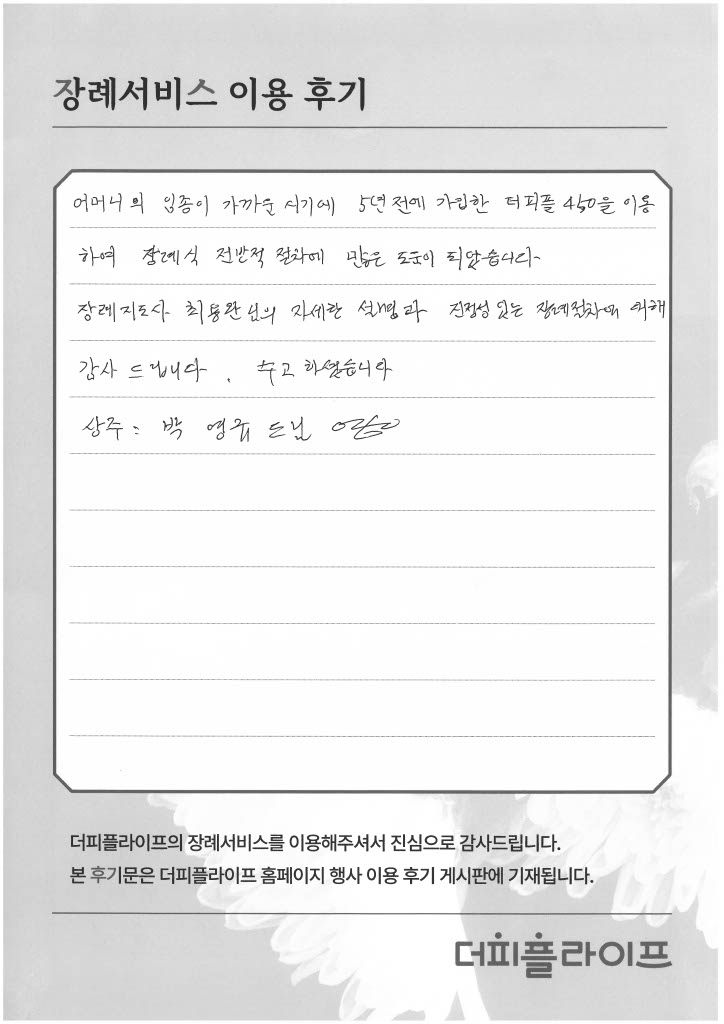 장례서비스 이용 후기
어머니의 임종이 가까운 시기에 5년전에 가입한 더피플 450을 이용
하여 장례식 전반적 절차에 많은 도움이 되었습니다.
장례지도사 최용완님의 자세한 설명과 진정성 있는 장례절차에 의해
감사 드립니다. 수고 하셨습니다
상주: 박영규 드림
더피플라이프의 장례서비스를 이용해주셔서 진심으로 감사드립니다.
본 후기문은 더피플라이프 홈페이지 행사 이용 후기 게시판에 기재됩니다.
더피플라이프